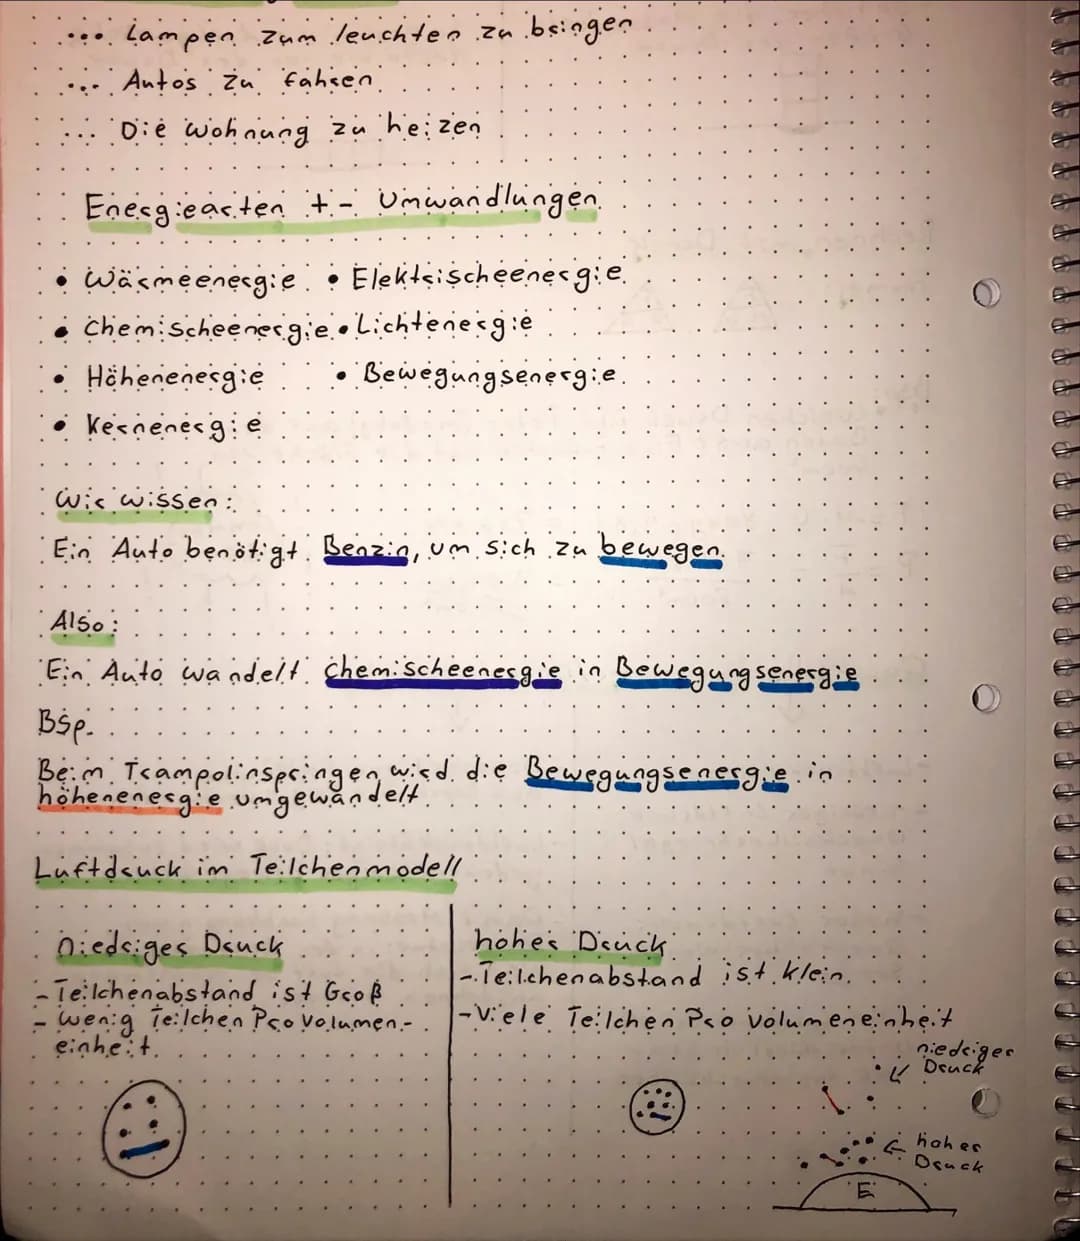 ... Lampen zum leuchten zu bringen
... Autos zu fahren
... Die wohnung zu heizen
Energiearten + - Umwandlungen
• Wärmeenergie • Elektrischeenergie
• Chemischeenergie • Lichtenergie
• Höhenenergie • Bewegungsenergie
• Kernenergie
Wir wissen:
Ein Auto benötigt Benzin, um sich zu bewegen.
Also:
Ein Auto wandelt chemischeenergie in Bewegungsenergie
Bsp.
Beim Trampolinspringen wird die Bewegungsenergie in
höhenenergie umgewandelt.
Luftdruck im Teilchenmodell
niedriges Druck
- Teilchenabstand ist Groß
- wenig Teilchen Pro Volumen-
einheit.
hoher Druck
- Teilchenabstand ist klein.
- Viele Teilchen Pro Volumeneinheit
niedriger
Druck
hoher
Druck
E